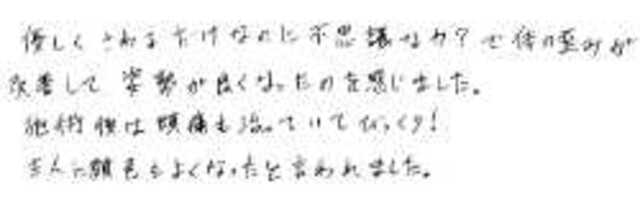 優しくさわるだけなのに不思議な力？で体の歪みが
改善して姿勢が良くなったのを感じました。
施術後は頭痛も治っていてびっくり！
主人に顔色もよくなったと言われました。